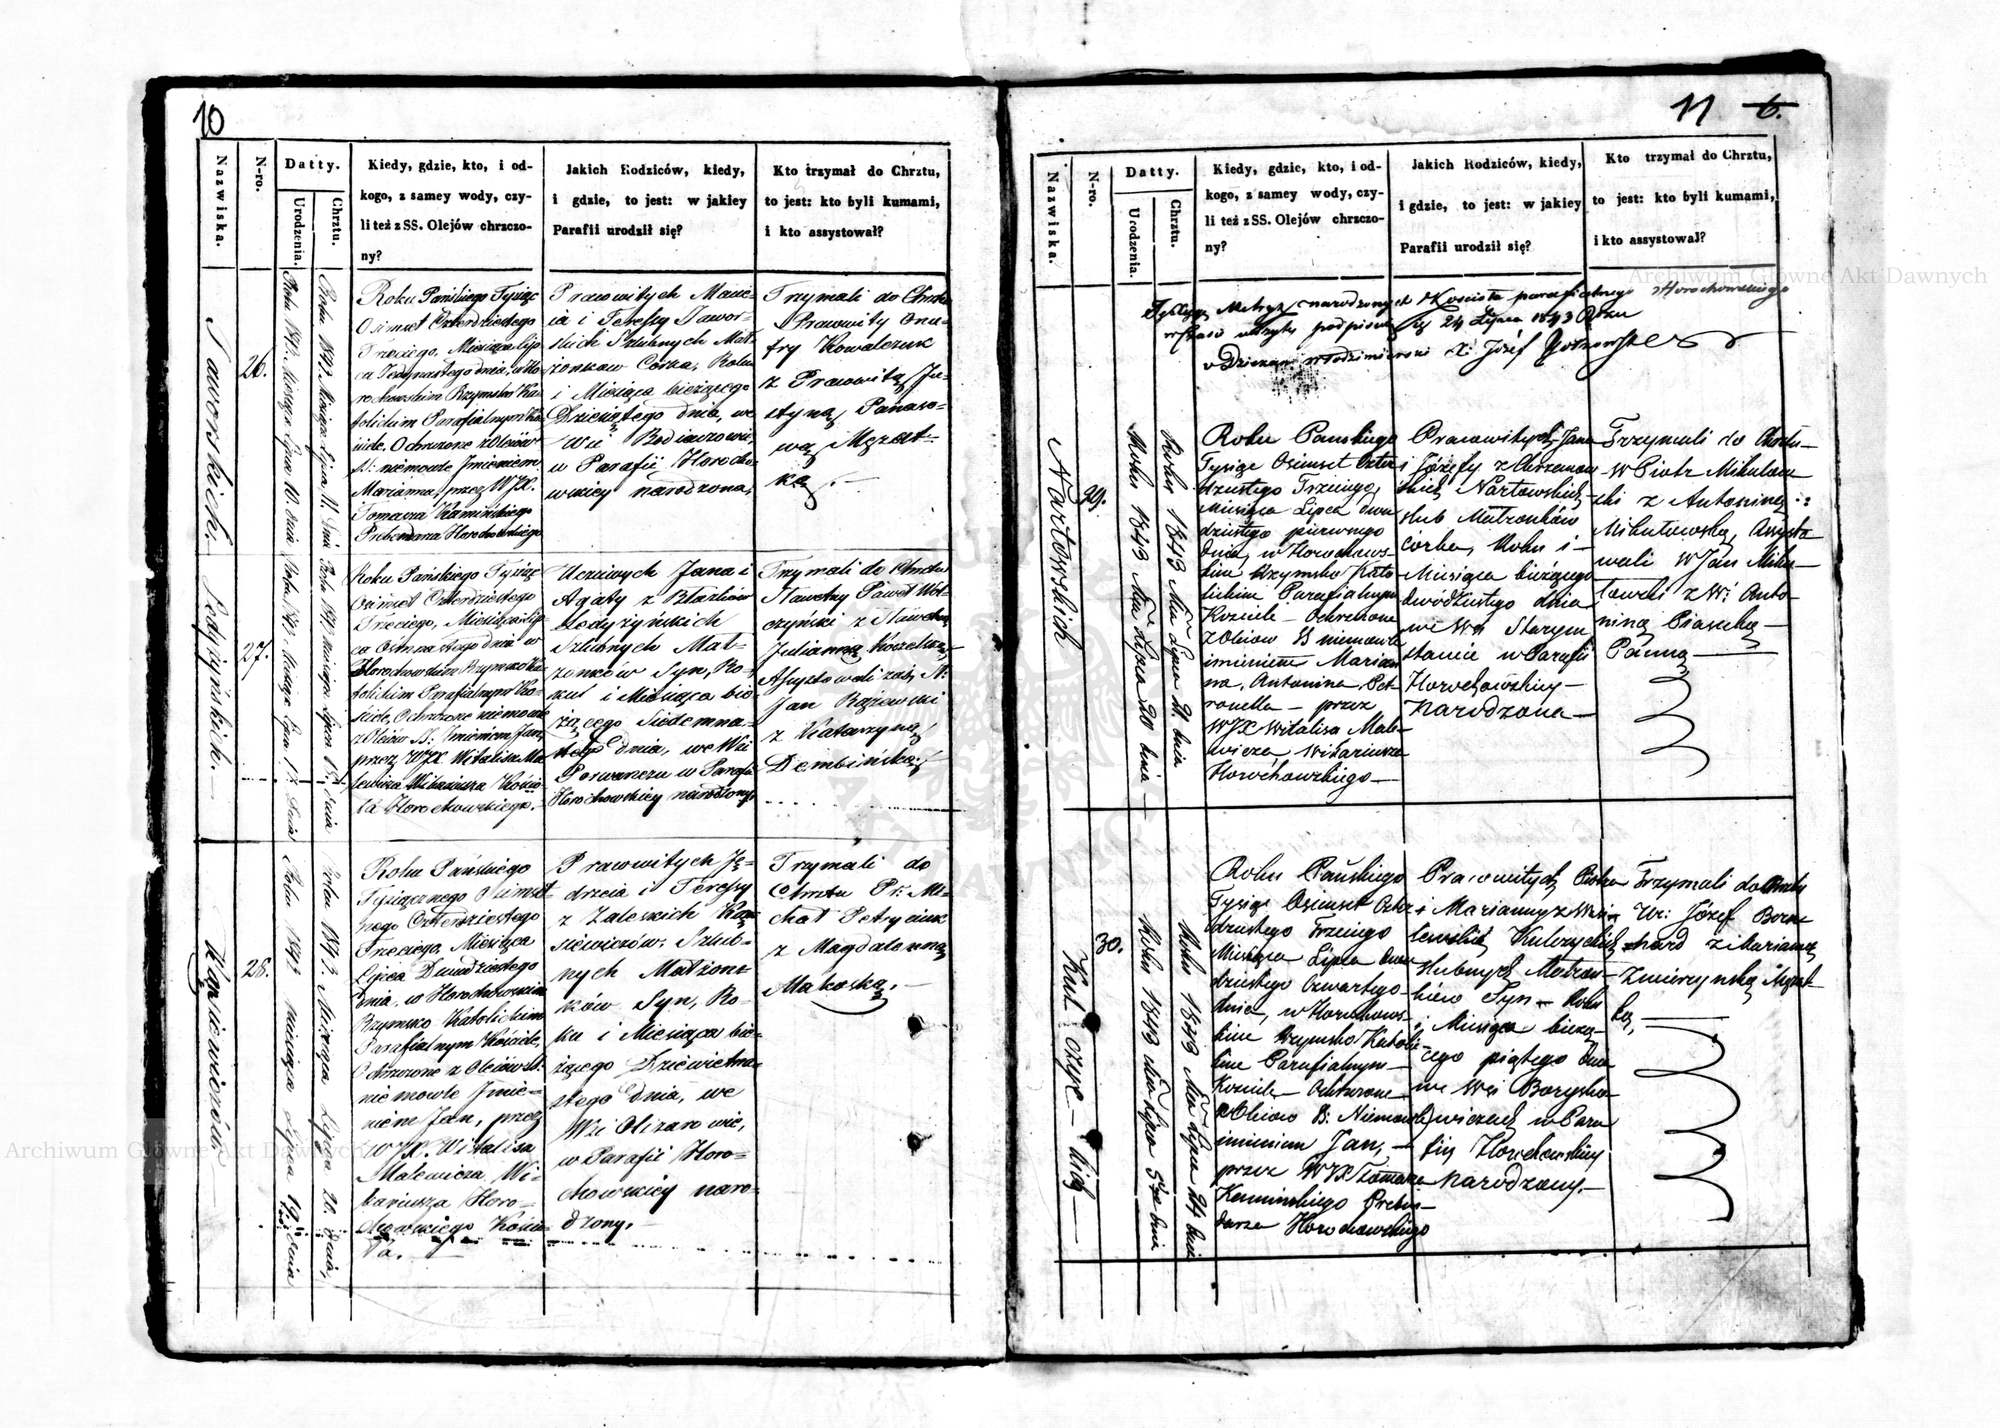 10
Nazwiska.
N-ro.
Datty.
Urodzenia.
Chrztu.
Kiedy, gdzie, kto, i od-
kogo, z samey wody, czy-
li też z SS. Olejów chrzczo-
ny?
Jakich Rodziców, kiedy,
i gdzie, to jest: w jakiey
Parafii urodził się?
Kto trzymał do Chrztu,
to jest: kto byli kumami,
i kto assystował?
Jaworskich.
26.
Roku 1843. Miesiąca Lipca 10. dnia
Roku 1843. Miesiąca Lipca 11. dnia
Roku Pańskiego Tysiąc
Osimset Czterdziestego
Trzeciego, Miesiąca Lip-
ca Jedynastego dnia, w Ho-
rochowskim Rzymsko Ka-
tolickim Parafialnym Ko-
ściele, Ochrzczone z Olejów
SS: niemowle Imieniem
Marianna, przez WJX.
Tomasza Kamińskiego
Prebendarza Horochowskiego
Pracowitych Macie-
ia i Teressy Jawor-
skich Szlubnych Mał-
żonkow Corka, Roku
i Miesiąca bieżącego
Dziesiątego dnia, we
Wsi
w Parafii Horocho-
wskiey narodzona,
Trzymali do Chrztu
Pracowity Onu-
fry Kowalczuk
z Pracowitą Ju-
styną Panaso-
wą
27.
Roku 1843. Miesiąca Lipca 17. dnia
Roku 1843. Miesiąca Lipca 18. dnia
Roku Pańskiego Tysiąc
Osimset Czterdziestego
Trzeciego, Miesiąca Lip-
ca Ośmnastego dnia w
Horochowskim Rzymsko Ka-
tolickim Parafialnym Ko-
ściele, Ochrzczone niemowle
z Olejów SS: imieniem Jan,
przez WJX. Witalisa Ma-
lewicza Wikariusza Kościo-
ła Horochowskiego.
Uczciwych Jana i
Agaty z
Szlubnych Mał-
żonków Syn, Ro-
ku i Miesiąca bie-
żącego Siedemna-
stego dnia, we Wsi
w Parafii
Horochowskiey narodzony,
Trzymali do Chrztu
Sławetny Paweł Woł-
czyński z Sławetną
Julianną
Assystowali zaś, W:
Jan
z Katarzyną
Dembińską;
28.
Roku 1843. Miesiąca Lipca 19. dnia
Roku 1843. Miesiąca Lipca 20. dnia,
Roku Pańskiego
Tysiącznego Osimset
nego Czterdziestego
Trzeciego, Miesiąca
Lipca Dwudziestego
dnia, w Horochowskim
Rzymsko Katolickim
Parafialnym Kościele,
Ochrzczone z Olejów SS.
niemowle Imie-
niem Jan, przez
WJX. Witalisa
Malewicza Wi-
kariusza Horo-
chowskiego Kościo-
ła.
Pracowitych Ję-
drzeia i Teressy
z Zaleskich Kąn-
siewiczów, Szlub-
nych Małżon-
ków Syn, Ro-
ku i Miesiąca bie-
żącego Dziewietna-
stego dnia, we
Wsi
w Parafii Horo-
chowskiey naro-
dzony.
Trzymali do
Chrztu Pr: Mi-
chał Petryciuk
z Magdalenną
Makoską.
11 6.
Nazwiska.
N-ro.
Datty.
Urodzenia.
Chrztu.
Kiedy, gdzie, kto, i od-
kogo, z samey wody, czy-
li też z SS. Olejów chrzczo-
ny?
Jakich Rodziców, kiedy,
i gdzie, to jest: w jakiey
Parafii urodził się?
Kto trzymał do Chrztu,
to jest: kto byli kumami,
i kto assystował?
Metryk narodzonych Kościoła parafialnego Horochowskiego
24 Lipca 1843 Roku
X: Józef
Nartowskich
29.
Roku 1843 Lipca 20 dnia
Roku 1843 Lipca 21. dnia
Roku Pańskiego
Tysiąc Osimset Czter
dziestego Trzeciego,
Miesiąca Lipca dwu
dziestego pierwszego
dnia, w Horochows-
kim Rzymsko Kato
lickim Parafialnym
Kosciele Ochrzczone
z Oleiow SS niemowle
imieniem Marian
na, Antonina Pet
ronella przez
WJX Witalisa Male
wicza, Wikariusza
Horochowskiego
Pracowitych Jana
i Józefy z
Nartowskich
slub Małzonków
corka, Roku i
Miesiąca bieżącego
dwódziestego dnia
we Wsi Starym
stawie w Parafii
Horochowskiey
Narodzona
Trzymali do Chrztu
W Piotr
z Antoniną
Assysto
wali W Jan
z W: Anto
niną Piasecką
Panną
Kulczyckich
30.
Roku 1843 Lipca 5 dnia
Roku 1843 Lipca 24 dnia
Roku Pańskiego
Tysiąc Osimset Czter
dziestego Trzeciego
Miesiąca Lipca dwu
dziestego Czwartego
dnia, w Horochows-
kim Rzymsko Katoli
kim Parafialnym
Kosciele Ochrzczone
z Oleiow S: Niemowle
imieniem Jan,
przez WJX Tomasza
Kaminskiego Preben-
darza Horochowskiego
Pracowitych Piotra
i Marianny z
Kulczyckich
slubnych Małzon-
ków Syn Roku
i Miesiąca bieżą-
cego piątego dnia
we Wsi
w Para
fii Horochowskiey
Narodzony.
Trzymali do Chrztu
W: Józef
z Marianną
Archiwum Główne Akt Dawnych
Archiwum Główne Akt Dawnych